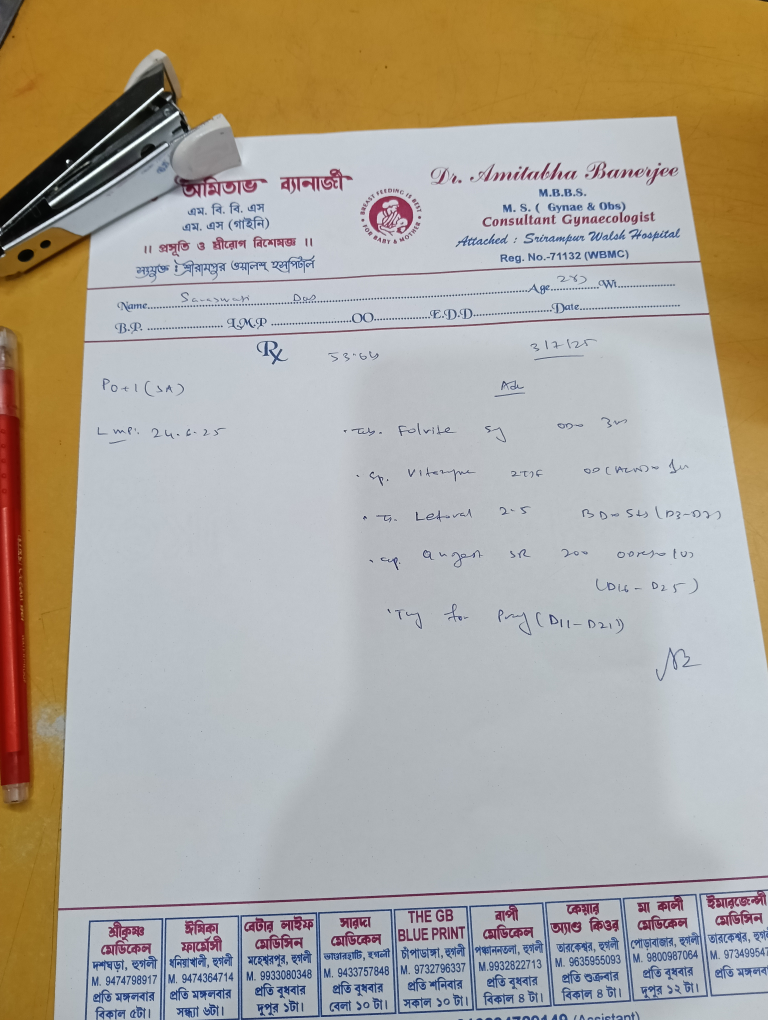 অমিতাভ ব্যানার্জী
এম. বি. বি. এস
এম. এস (গাইনি)
।। প্রসূতি ও স্ত্রীরোগ বিশেষজ্ঞ ।।
সংযুক্ত : শ্রীরামপুর ওয়ালশ্ হসপিটাল
BREAST FEEDING IS BEST
FOR BABY & MOTHER
Dr. Amitabha Banerjee
M.B.B.S.
M. S. ( Gynae & Obs)
Consultant Gynaecologist
Attached : Srirampur Walsh Hospital
Reg. No.-71132 (WBMC)
Name Saraswati Das Age Wt
B.P. L.M.P OO E.D.D. Date
Rx 53.64 3/7/25
P0+1 (SA) Adv
LMP: 24.6.25
• Tab. Folvite 5g
• Cp.
• T. Letoval 2.5 BD 5ds (D3-D7)
• Cp. SR 200
(D16-D25)
• Try for Preg (D11-D21)
শ্রীকৃষ্ণ মেডিকেল
দশঘড়া, হুগলী
M. 9474798917
প্রতি মঙ্গলবার
বিকাল ৫টা।
ঈশিকা ফার্মেসী
ধনিয়াখালী, হুগলী
M. 9474364714
প্রতি মঙ্গলবার
সন্ধ্যা ৬টা।
বেটার লাইফ মেডিসিন
মহেশ্বরপুর, হুগলী
M. 9933080348
প্রতি বুধবার
দুপুর ১টা।
সারদা মেডিকেল
হুগলী
M. 9433757848
প্রতি বুধবার
বেলা ১০ টা।
THE GB BLUE PRINT
চাঁপাডাঙ্গা, হুগলী
M. 9732796337
প্রতি শনিবার
সকাল ১০ টা।
বাপী মেডিকেল
পঞ্চাননতলা, হুগলী
M.9932822713
প্রতি বুধবার
বিকাল ৪ টা।
কেয়ার অ্যাণ্ড কিওর
তারকেশ্বর, হুগলী
M. 9635955093
প্রতি শুক্রবার
বিকাল ৪ টা।
মা কালী মেডিকেল
পোড়াবাজার, হুগলী
M. 9800987064
প্রতি বুধবার
দুপুর ১২ টা।
ইমারজেন্সী মেডিসিন
তারকেশ্বর, হুগলী
প্রতি মঙ্গলবার
(Assistant)